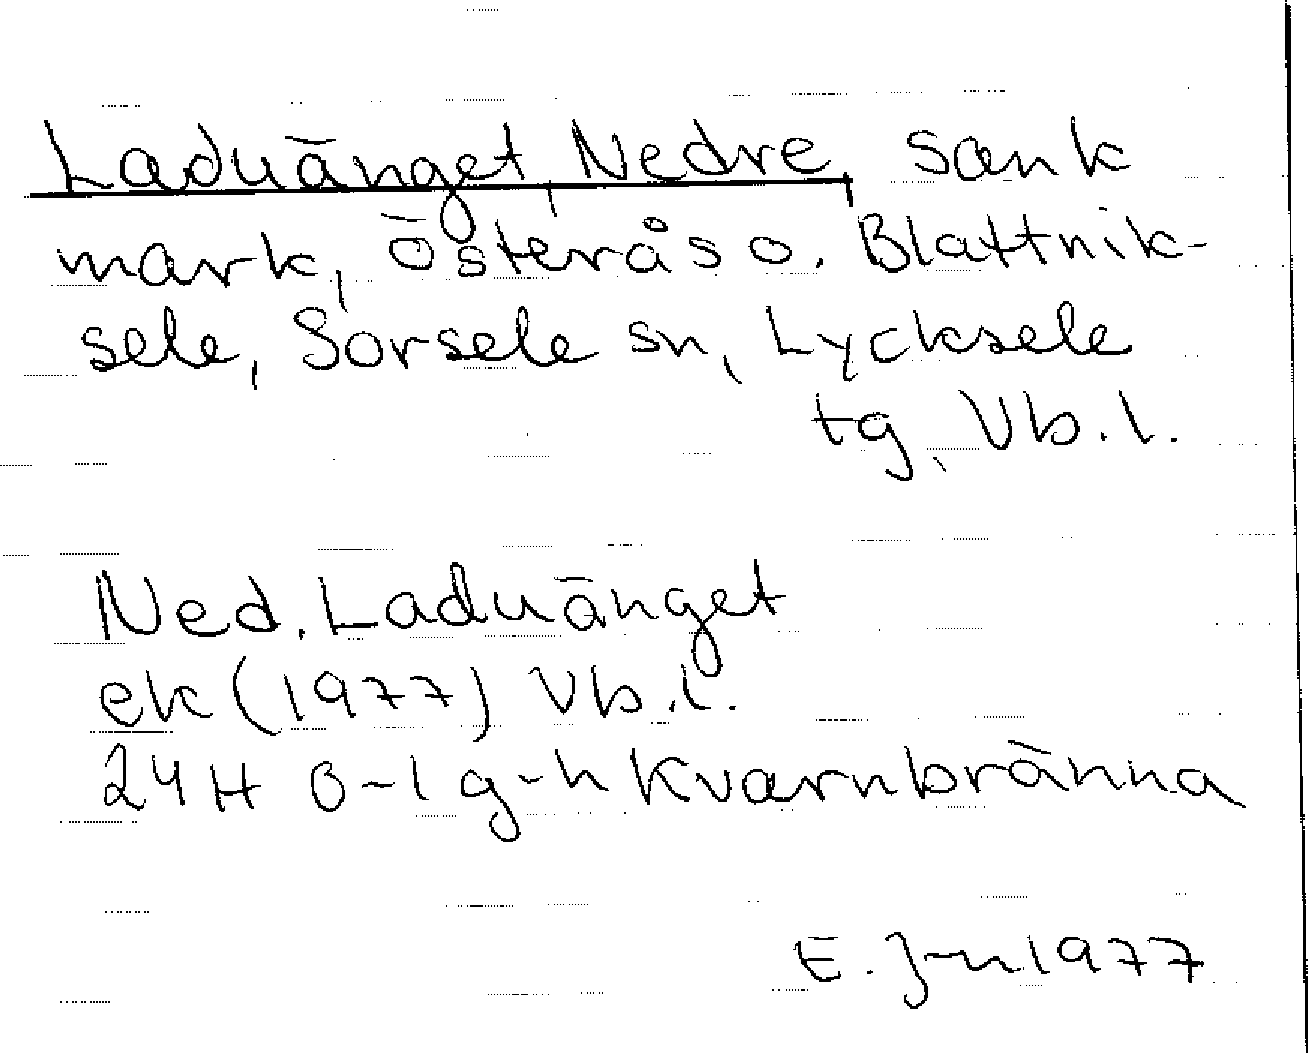 Laduänget, Nedre, sank
mark, Österås o. Blattnik-
sele, Sorsele sn, Lycksele
tg, Vb.l.
Ned. Laduänget
ek (1977) Vb.l.
24H 0-1 g-h Kvarnbränna
E. J-n 1977